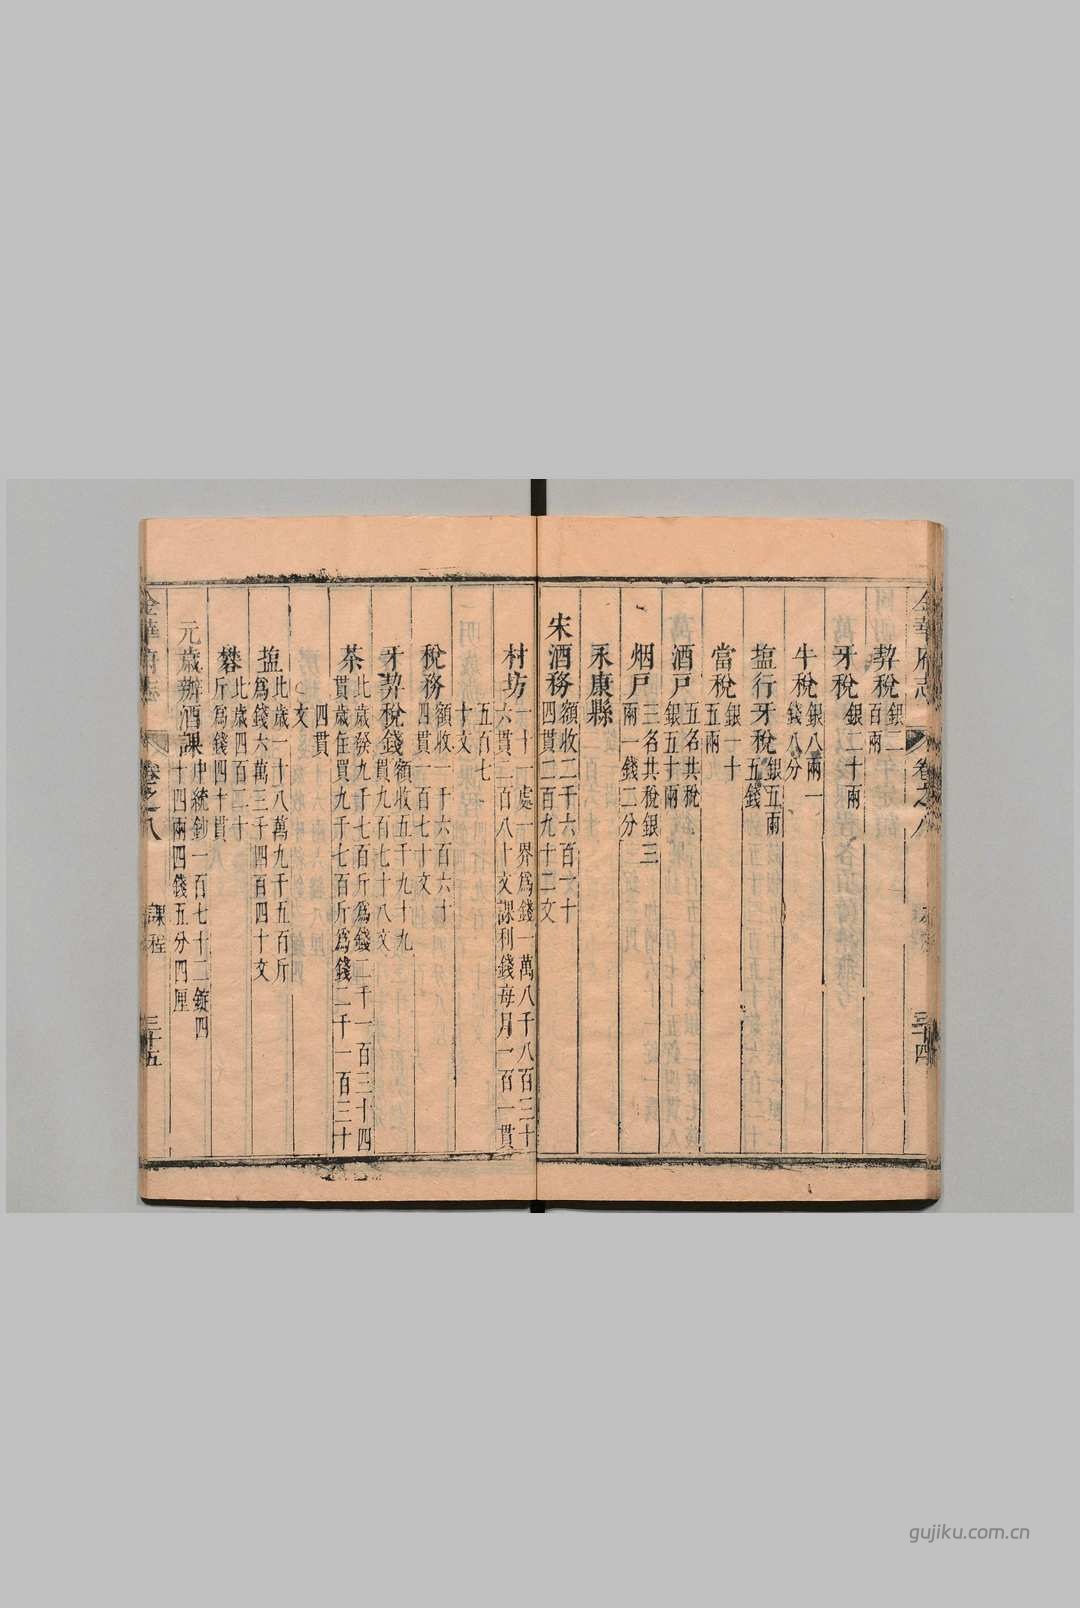 金華府志 卷之八 課程 三十四
契稅銀二百兩
牙稅銀二十兩
牛稅銀八兩一錢八分
塩行牙稅銀五兩五錢
當稅銀一十五兩
酒戸五名共稅銀五十兩
烟戸三名共稅銀三兩一錢二分
永康縣
宋酒務額收二千六百一十四貫二百九十二文
村坊一十一處一界爲錢一萬八千八百三十六貫二百八十文課利錢每月一百一貫
五百七十文
稅務額收一千六百六十四貫一百七十文
牙契稅錢額收五千九十九貫九百七十八文
茶此歲發九千七百斤爲錢二千一百三十四貫歲住買九千七百斤爲錢二千一百三十
四貫〇文
塩此歲一十八萬九千五百斤爲錢六萬三千四百四十文
礬此歲四百四十斤爲錢四十貫
元歲辦酒課中統鈔一百七十二錠四十四兩四錢五分四厘
金華府志 卷之八 課程 三十五
gujiku.com.cn